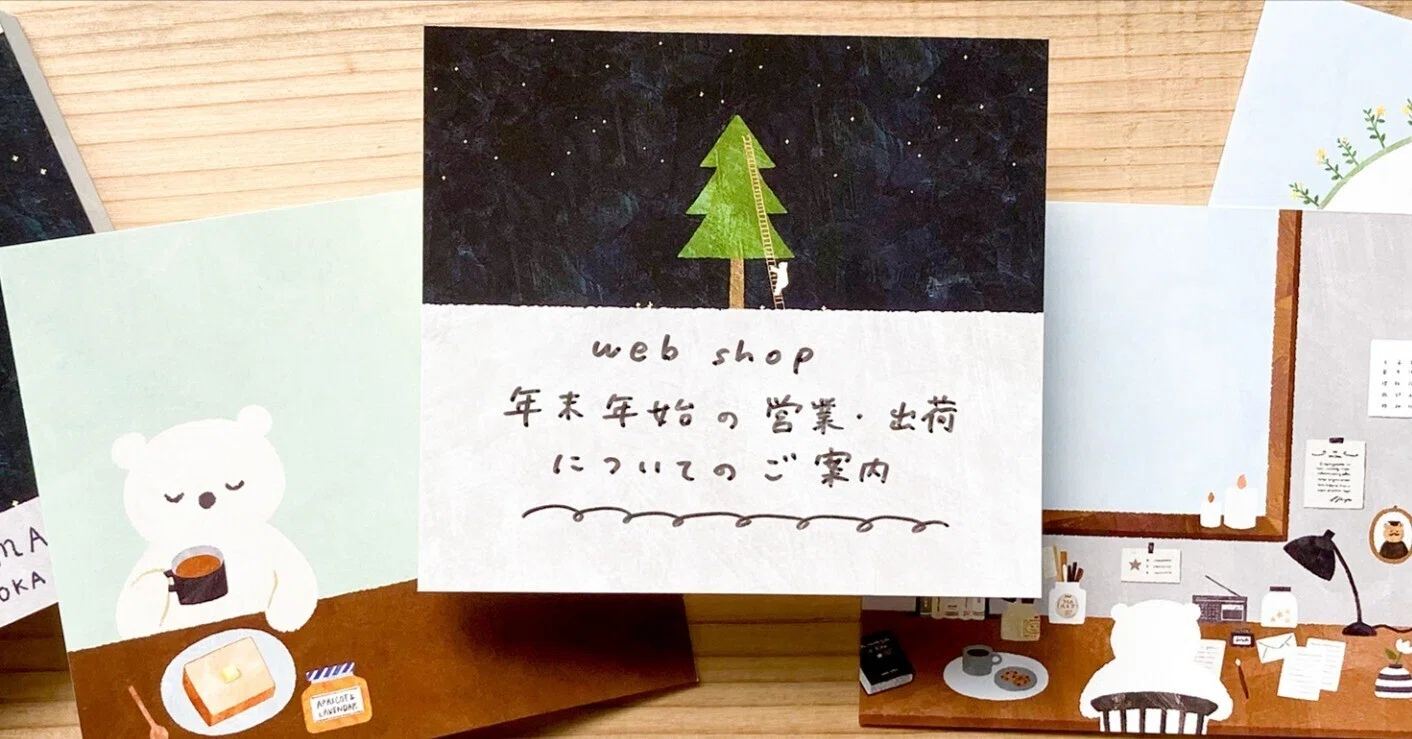 web shop
年末年始の営業・出荷
についてのご案内
APRICOT &
LAVENDAR
MA
OKA